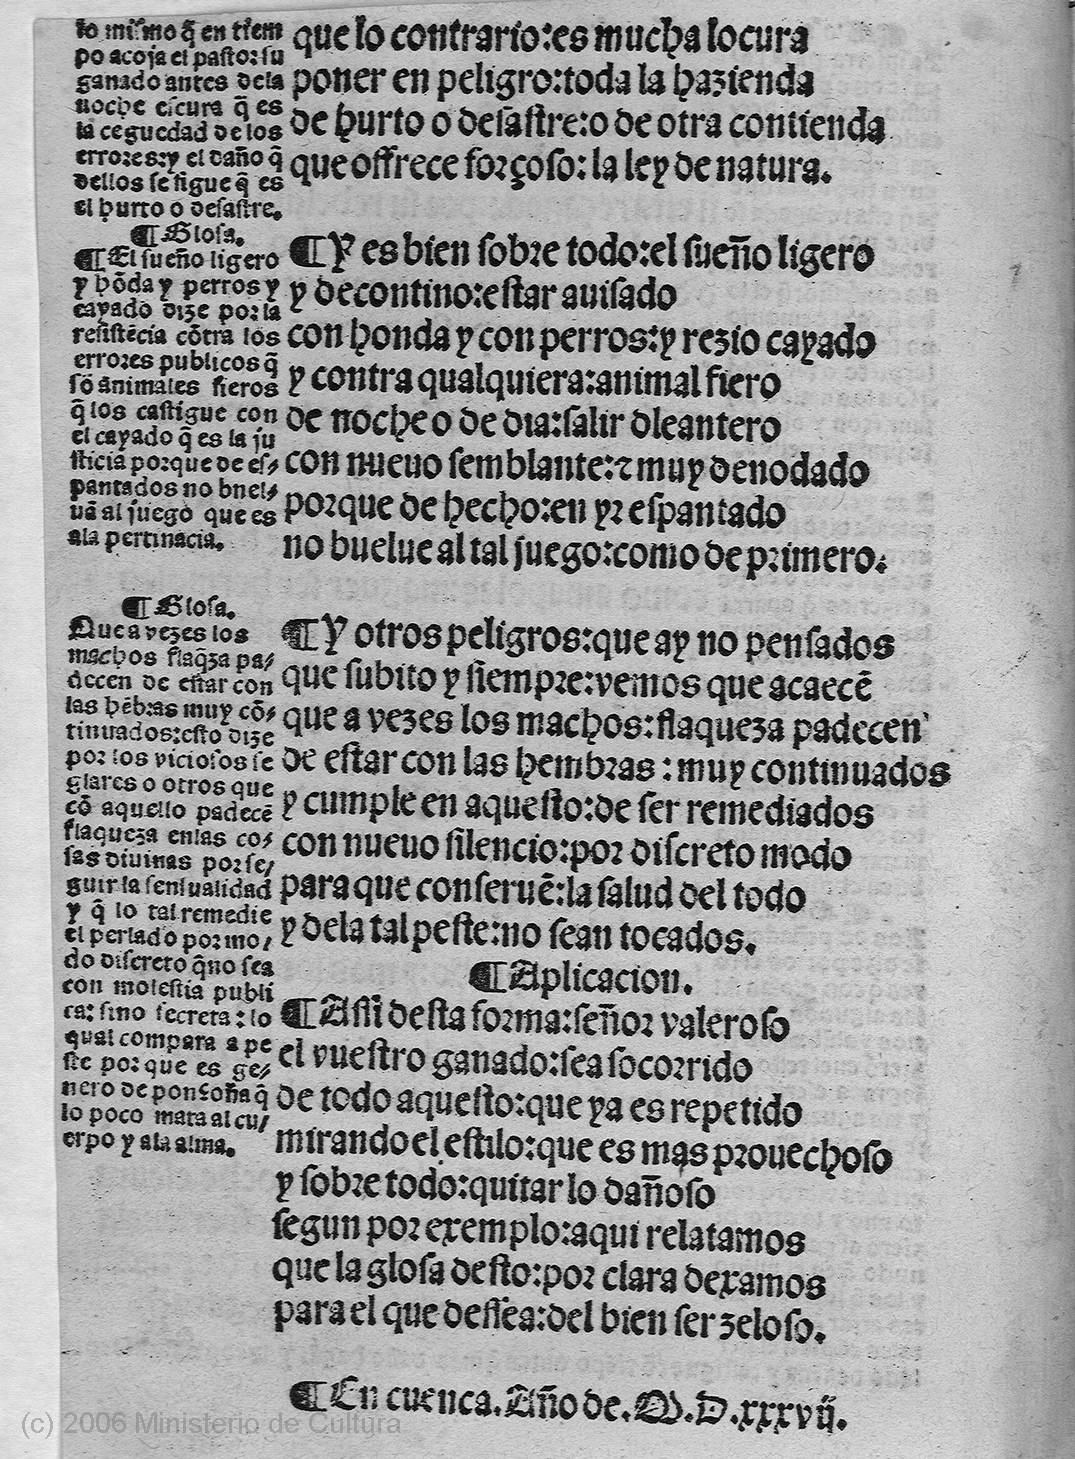 lo mismo q̃ en tiem
po acoja el pastor su
ganado antes dela
noche escura q̃ es
la ceguedad de los
errores:y el daño q̃
dellos se sigue q̃ es
el hurto o desastre.
¶ Glosa.
¶ El sueño ligero
y hõda y perros y
cayado dize por la
resistẽcia cõtra los
errores publicos q̃
sõ animales fieros
q̃ los castigue con
el cayado q̃ es la ju
sticia porque de es-
pantados no bnel-
uã al juego que es
ala pertinacia.
¶ Glosa.
Que a vezes los
machos flaq̃za pa-
decen de estar con
las hẽbras muy cõ-
tinuados:esto dize
por los viciosos se
glares o otros que
cõ aquello padecẽ
flaqueza enlas co-
sas diuinas por se-
guir la sensualidad
y q̃ lo tal remedie
el perlado por mo-
do discreto q̃ no sea
con molestia publi
ca: sino secreta: lo
qual compara a pe
ste porque es ge-
nero de ponçoña q̃
lo poco mata al cu-
erpo y ala alma.
que lo contrario:es mucha locura
poner en peligro:toda la hazienda
de hurto o desãstre:o de otra contienda
que offrece forçoso: la ley de natura.
¶ Y es bien sobre todo:el sueño ligero
y decontino:estar auisado
con honda y con perros:y rezio cayado
y contra qualquiera:animal fiero
de noche o de dia:salir dleantero
con nueuo semblante:⁊ muy denodado
porque de hecho:en yr espantado
no buelue al tal juego:como de primero.
¶ Y otros peligros:que ay no pensados
que subito y siempre:vemos que acaecẽ
que a vezes los machos:flaqueza padecen
de estar con las hembras : muy continuados
y cumple en aquesto:de ser remediados
con nueuo silencio:por discreto modo
para que conseruẽ:la salud del todo
y dela tal peste:no sean tocados.
¶ Aplicacion.
¶ Assi desta forma:señor valeroso
el vuestro ganado:sea socorrido
de todo aquesto:que ya es repetido
mirando el estilo:que es mas prouechoso
y sobre todo:quitar lo dañoso
segun por exemplo:aqui relatamos
que la glosa desto:por clara dexamos
para el que dessea:del bien ser zeloso.
¶ En cuenca. Año de. M.D.xxxvij.
(c) 2006 Ministerio de Cultura